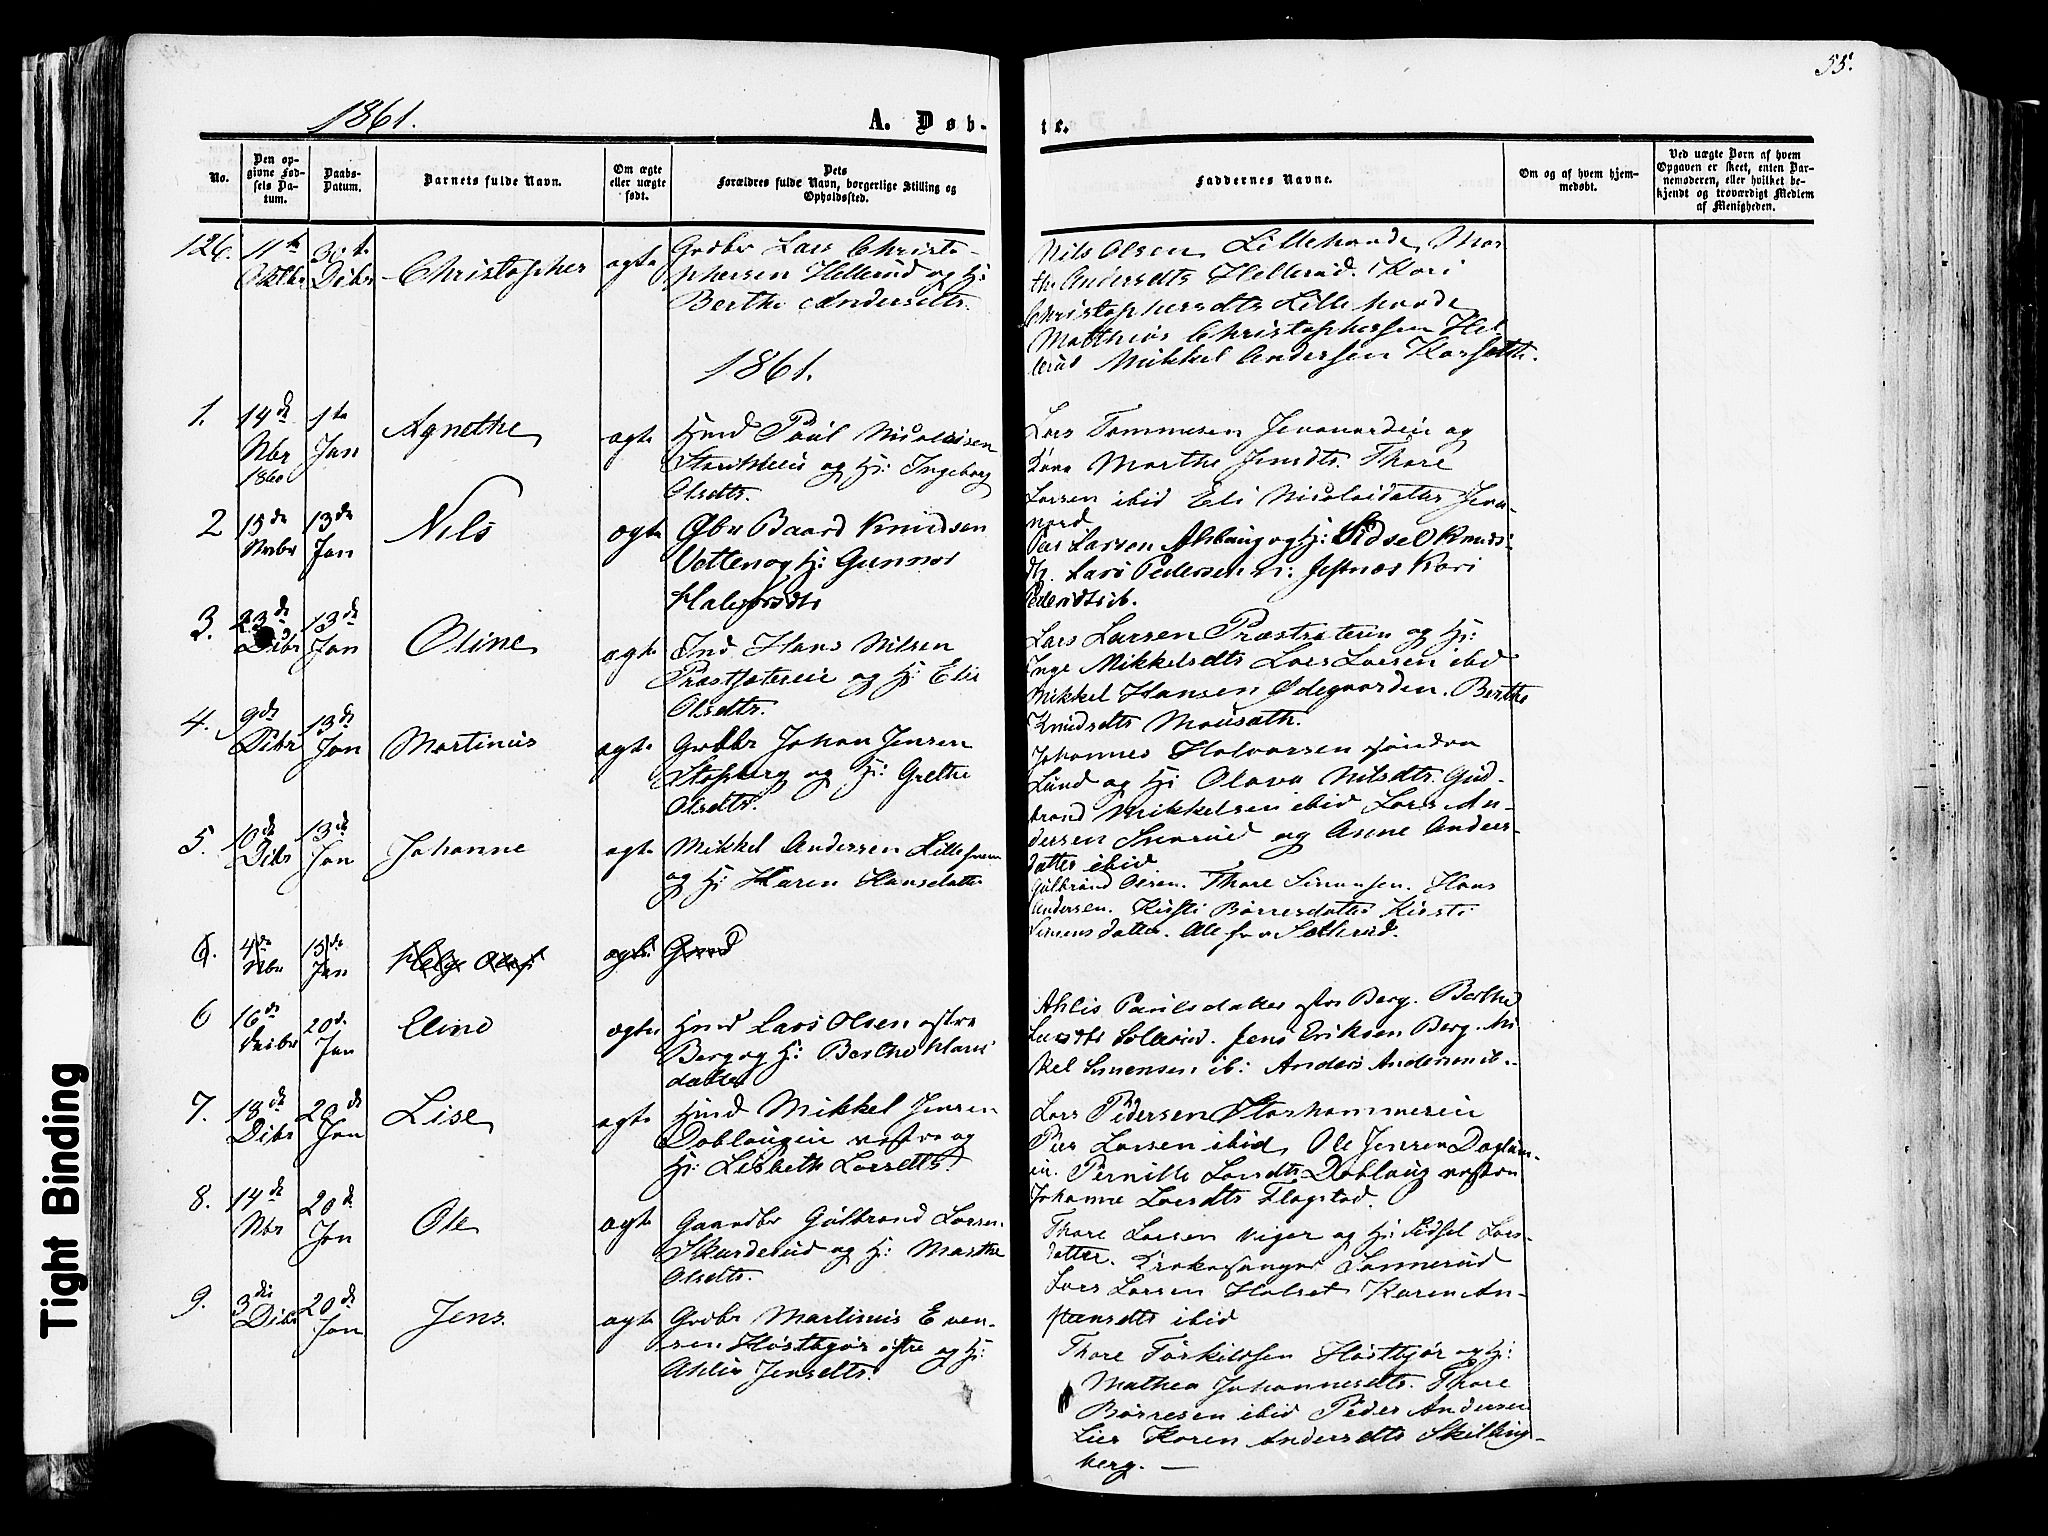 55.
1861.
A. Døb-
te.
No.
Den op-
givne Fød-
sels Da-
tum.
Daabs-
Datum.
Barnets fulde Navn.
Om ægte
eller uægte
født.
Dets
Forældres fulde Navn, borgerlige Stilling og
Opholdssted.
Faddernes Navne.
Om og af hvem hjem-
medøbt.
Ved uægte Børn af hvem
Opgaven er skeet, enten Bar-
nemoderen, eller hvilket be-
kjendt og troværdigt Medlem
af Menigheden.
126.
11te
Oktbr
Dcbr
Christopher
ægte
Grdbr Lars Christo-
phersen Hellerud og Hj:
Berthe Andersdtr.
Nils Olsen Mar-
the Andersdtr Hellerud. Kari
Christophersdtr
Matthias Christophersen Hel-
lerud Mikkel Andersen
1861.
1.
14de
Nbr
1860
1te
Jan
Agnethe
ægte
Hmd Paul Nicolaisen
og Hj: Ingeborg
Olsdtr.
Lars Tommesen og
Kone Marthe Jensdtr. Thore
Larsen ibid Eli Nicolaidatter
2
15de
Nvbr
13de
Jan
Nils
ægte
Baard Knudsen
og Hj: Gunnor
Halvorsdtr
Peer Larsen og Hj: Sidsel Knuds-
dtr. Lars Pedersen Kari
Pedersdtr ib.
3.
23de
Dcbr
13de
Jan
Oline
ægte
Ind Hans Nilsen
Præstsæterie og Hj: Elie
Olsdtr.
Lars Larsen Præstsæterie og Hj:
Inge Mikkelsdtr Lars Larsen ibid
Mikkel Hansen Ødegaarden. Berthe
Knudsdtr
4.
9de
Dcbr
13de
Jan
Martinus
ægte
Grdbr Johan Jensen
og Hj: Grethe
Olsdtr.
Johannes Halvorsen søndre
Lund og Hj Olava Nilsdtr. Gud-
brand Mikkelsen ibid Lars An-
dersen og Anne Anders-
datter ibid
5.
10de
Dcbr
13de
Jan
Johanne
ægte
Mikkel Andersen
og Hj: Karen Hansdatter
Gulbrand Olsen. Thore Simensen. Hans
Andersen. Kirsti Børresdatter Kirsti
Simensdatter. Alle fra Sollerud.
6.
4de
Nbr
13de
Jan
ægte
6
16de
20de
Jan
Eline
ægte
Hmd Lars Olsen østre
Berg og Hj: Berthe Hans
datter
Ahlis Paulsdatter østre Berg. Berthe
Larsdtr Sollerud. Jens Eriksen Berg. Mi
kel Simensen ib: Anders Andersen ib.
7.
18de
Dcbr
20de
Jan
Lise
ægte
Hmd Mikkel Jensen
Doblougen vestre og
Hj: Lisbeth Larsdtr.
Lars Pedersen Storhammeren
Peer Larsen ibid, Ole Jensen
Pernille Larsdtr Doblaug vestre
Johanne Larsdtr Flagstad.
8.
14de
Nbr
20de
Jan
Ole
ægte
Gaardbr Gulbrand Larsen
Skarderud og Hj: Marthe
Olsdtr.
Thore Larsen og Hj: Sidsel Lars-
datter.
Lars Larsen Holset Karen An-
ibid
9.
3die
Dcbr
20de
Jan
Jens.
ægte
Grdbr Martinus Even-
sen Høstbjør østre og Hj:
Ahlis Jensdtr.
Thore Torkildsen Høstbjør og Hj:
Mathea Johannesdtr. Thore
Børresen ibid Peder Andersen
Lier Karen Andersdtr Skilling-
berg. —
Tight Binding